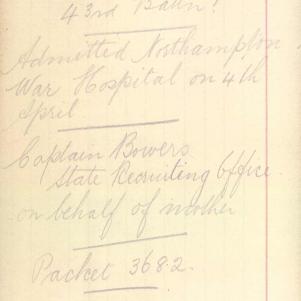 43rd Battn!
Admitted Northampton
War Hospital on 4th
April
Captain Bowers
State Recruiting Office
on behalf of mother
Packet 3682.